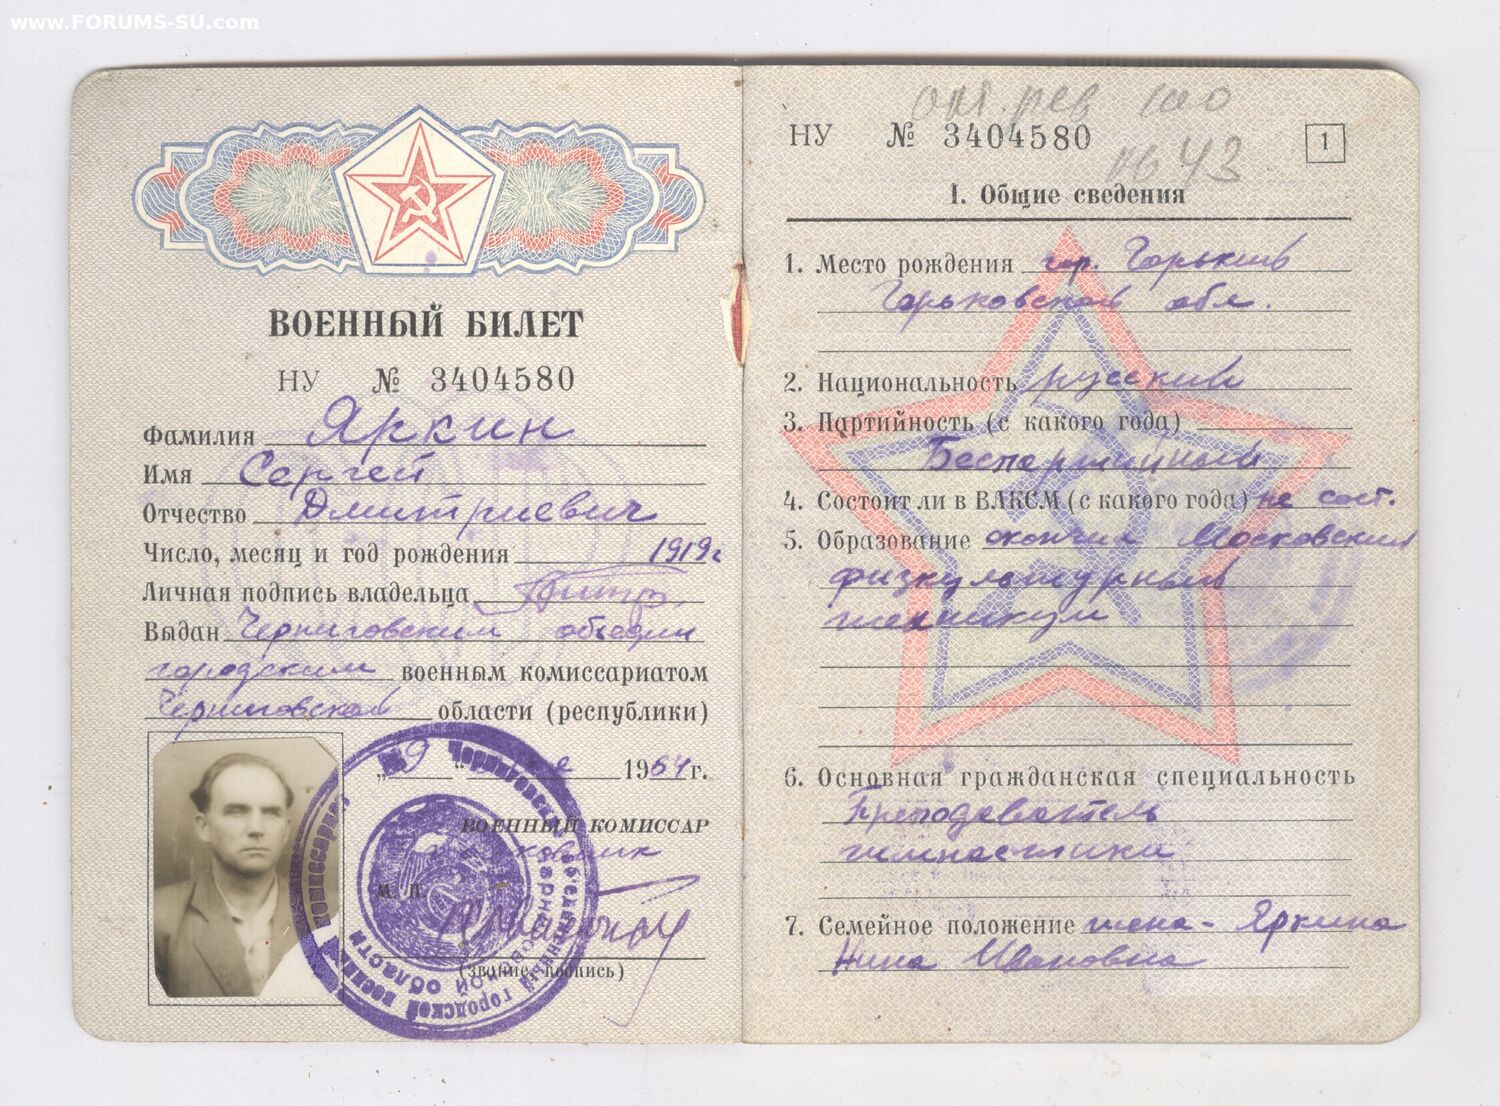 www.FORUMS-SU.com
ВОЕННЫЙ БИЛЕТ
НУ № 3404580
Фамилия Яркин
Имя Сергей
Отчество Дмитриевич
Число, месяц и год рождения 1919г
Личная подпись владельца
Выдан Черниговским объедин
городским военным комиссариатом
Черниговской области (республики)
„ 9 “ 1964 г.
ВОЕННЫЙ КОМИССАР
М. П.
(звание, подпись)
НУ № 3404580
1
I. Общие сведения
1. Место рождения гор. Горький
Горьковской обл.
2. Национальность русский
3. Партийность (с какого года)
Беспартийный
4. Состоит ли в ВЛКСМ (с какого года) не сост.
5. Образование окончил Московский
физкультурный
техникум
6. Основная гражданская специальность
Преподаватель
гимнастики
7. Семейное положение жена - Яркина
Нина Ивановна